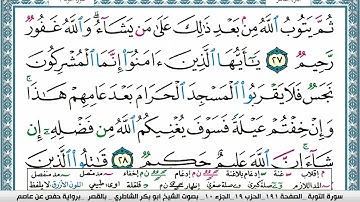 ثُمَّ يَتُوبُ ٱللَّهُ مِنۢ بَعْدِ ذَٰلِكَ عَلَىٰ مَن يَشَآءُ ۗ وَٱللَّهُ غَفُورٌ
رَّحِيمٌ ٢٧ يَـٰٓأَيُّهَا ٱلَّذِينَ ءَامَنُوٓا۟ إِنَّمَا ٱلْمُشْرِكُونَ
نَجَسٌ فَلَا يَقْرَبُوا۟ ٱلْمَسْجِدَ ٱلْحَرَامَ بَعْدَ عَامِهِمْ هَـٰذَا ۚ
وَإِنْ خِفْتُمْ عَيْلَةً فَسَوْفَ يُغْنِيكُمُ ٱللَّهُ مِن فَضْلِهِۦٓ إِن
شَآءَ ۚ إِنَّ ٱللَّهَ عَلِيمٌ حَكِيمٌ ٢٨ قَـٰتِلُوا۟ ٱلَّذِينَ
سورة التوبة . الصفحة ١٩١ . الحزب ١٩ . الجزء ١٠ . بصوت الشيخ ابو بكر الشاطري . بالقصر . برواية حفص عن عاصم